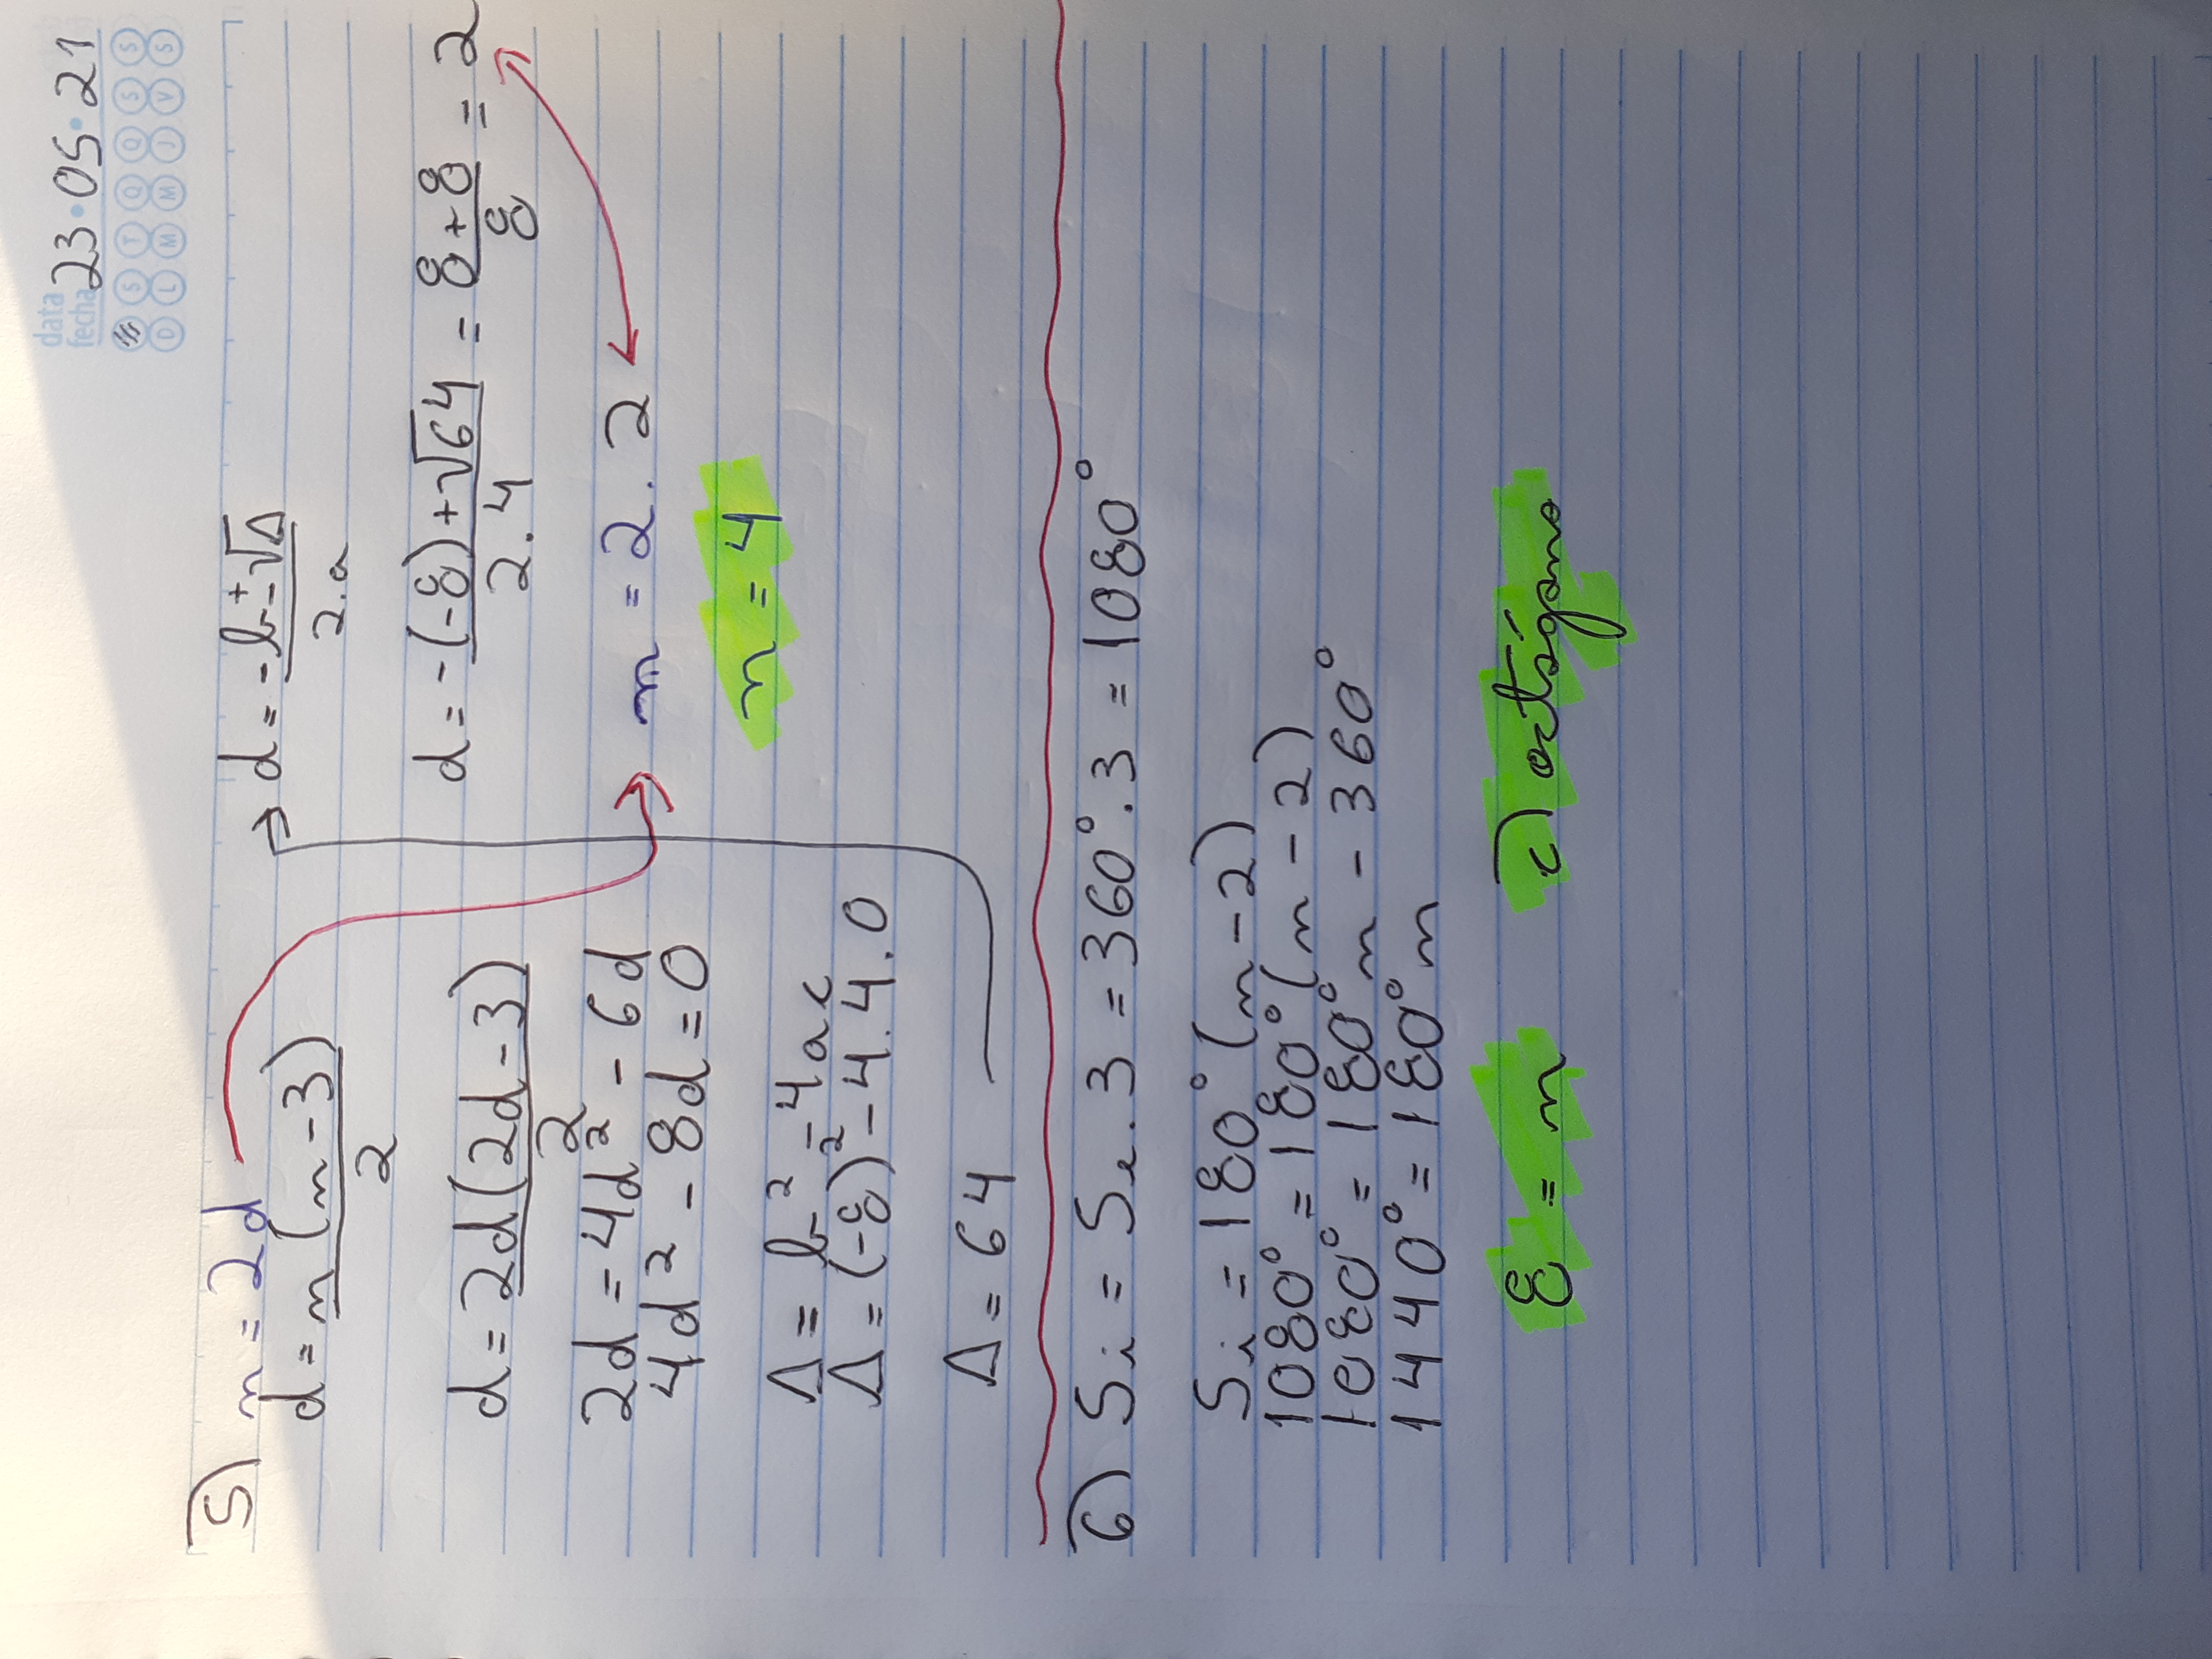 data
fecha 23·05·21
S T Q Q S S
D L M M J V S
5) n = 2d
d = n(n-3)
2
d = 2d(2d-3)
2
2d = 4d² - 6d
4d² - 8d = 0
Δ = b² - 4ac
Δ = (-8)² - 4.4.0
Δ = 64
d = -b ± √Δ
2.a
d = -(-8) + √64 = 8+8 = 2
2.4 8
n = 2.2
n = 4
6) Si = Se.3 = 360°.3 = 1080°
Si = 180°(n-2)
1080° = 180°(n-2)
1080° = 180°n - 360°
1440° = 180°n
8 = n c) octógono